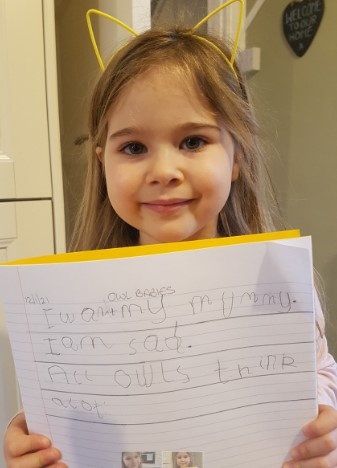 WELCOME
TO OUR
HOME
x
12/1/21
OWL BABIES
I want my mummy.
I am sad.
All owls think
alot